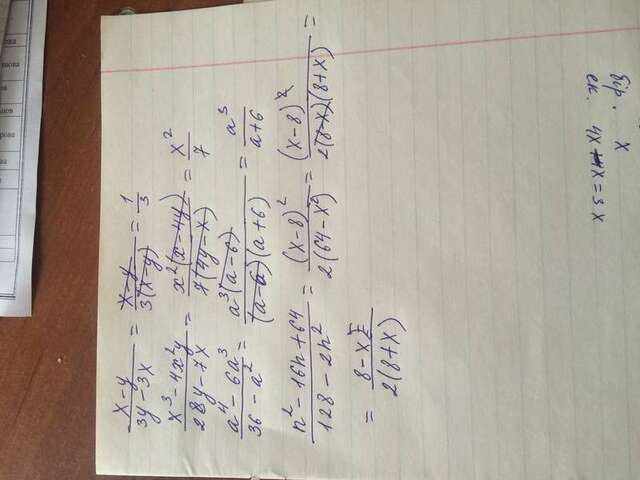 (x-y)/(3y-3x) = (x-y)/(3(x-y)) = 1/3
(x³-4x²y)/(28y-7x) = (x²(x-4y))/(7(4y-x)) = x²/7
(a⁴-6a³)/(36-a²) = (a³(a-6))/((a-6)(a+6)) = a³/(a+6)
(n²-16n+64)/(128-2n²) = (x-8)²/(2(64-x²)) = (x-8)²/(2(8-x)(8+x)) =
= (8-x)/(2(8+x))
x
4x = 3x